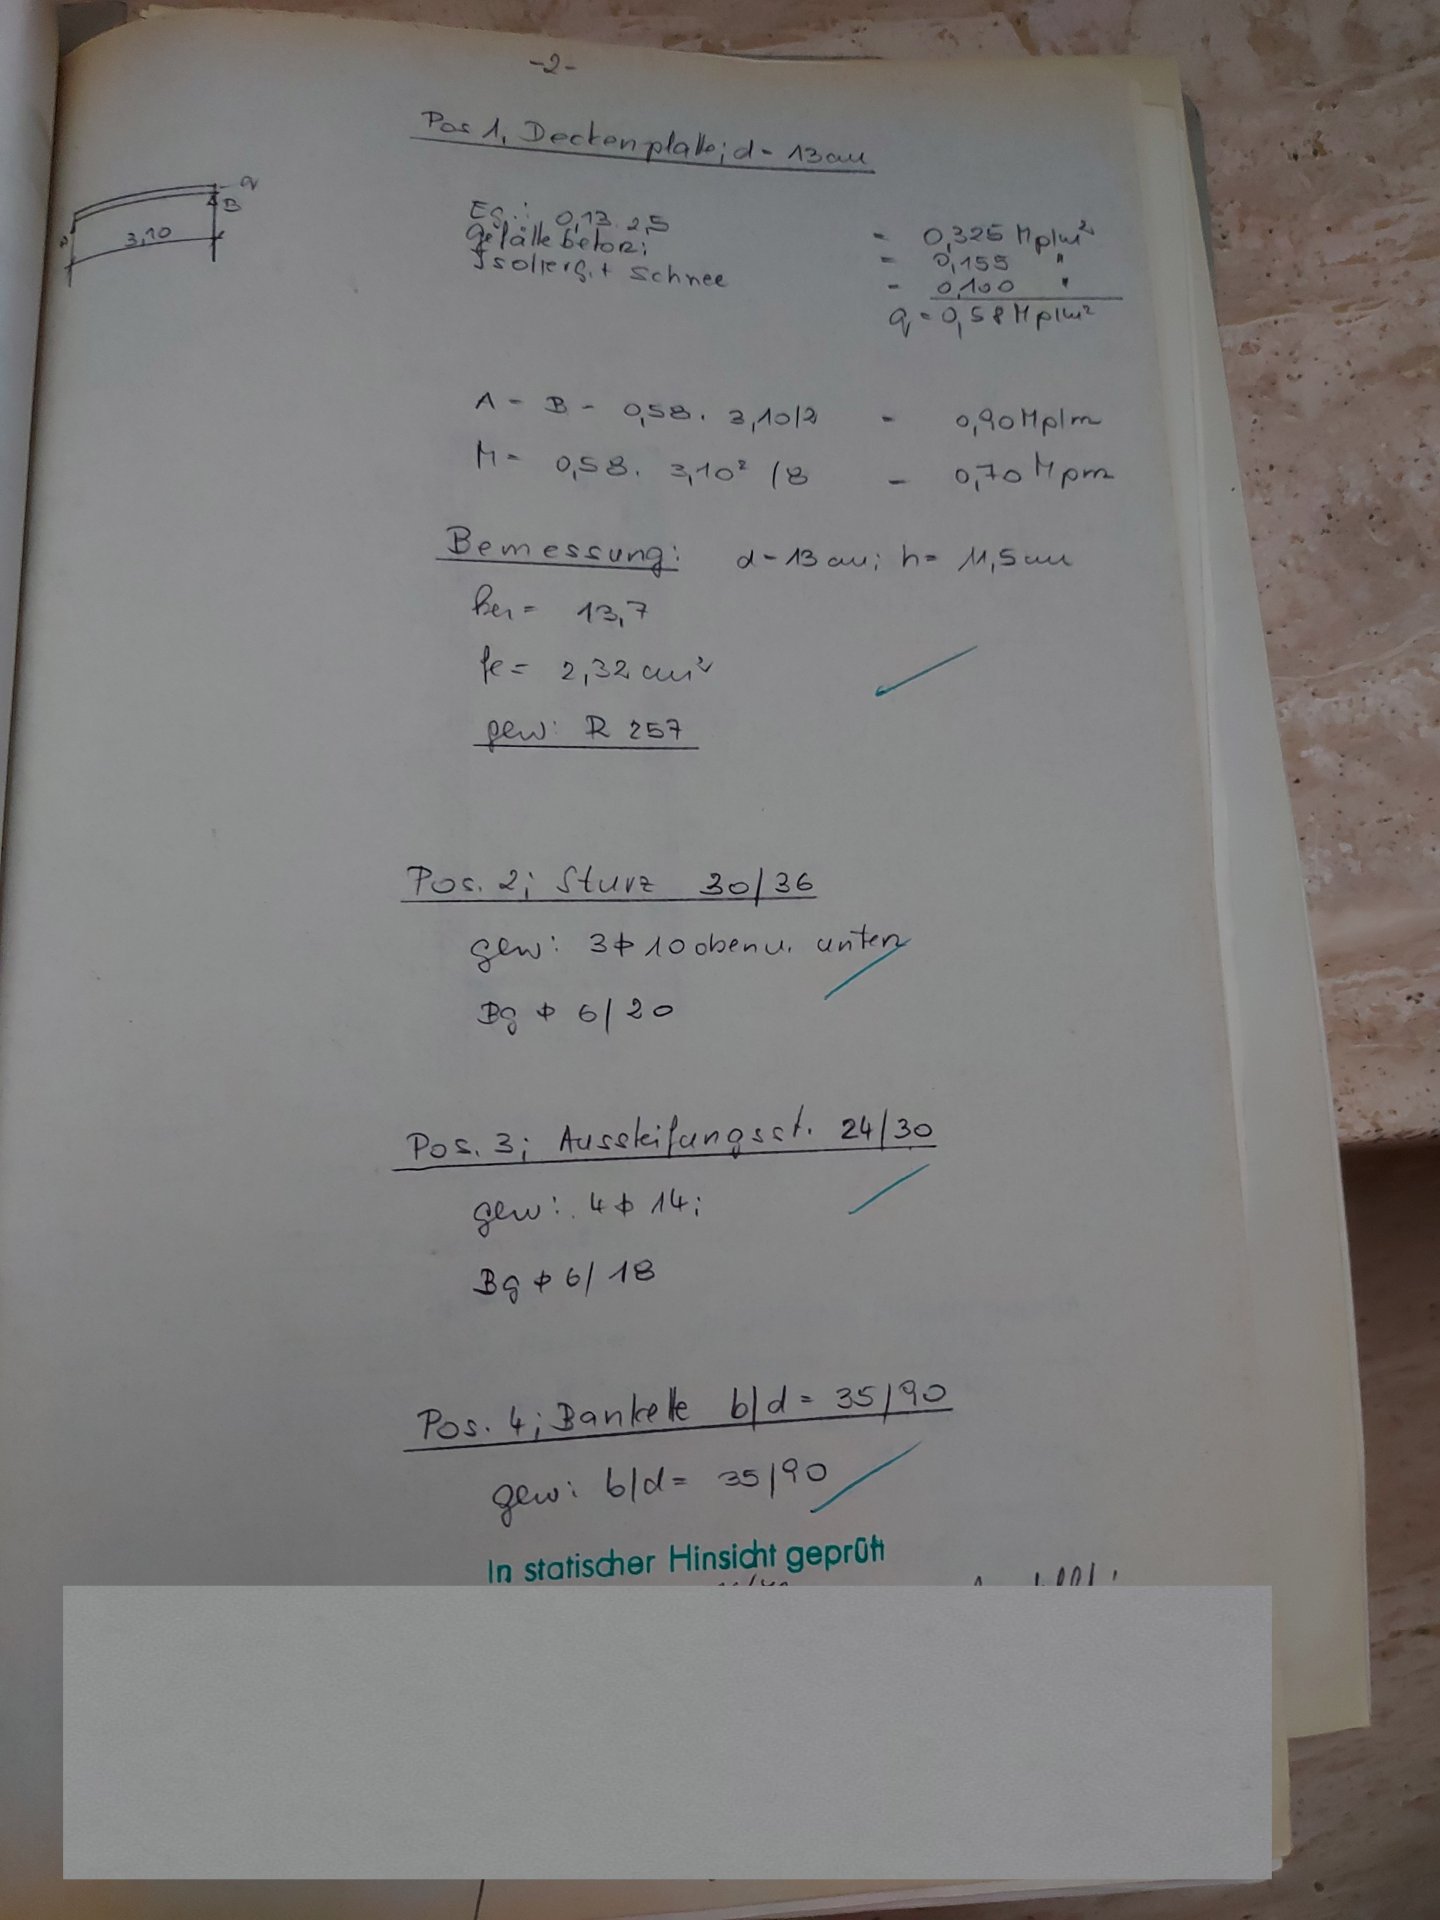 -2-
Pos 1, Deckenplatte; d = 13 cm
q
B
3,10
Eg.: 0,13 . 2,5 = 0,325 Mp/m²
Gefällebeton: = 0,155 "
Isolierg. + Schnee = 0,100 "
q = 0,58 Mp/m²
A = B = 0,58 . 3,10/2 = 0,90 Mp/m
M = 0,58 . 3,10² /8 = 0,70 Mpm
Bemessung: d = 13 cm; h = 11,5 cm
= 13,7
fe = 2,32 cm²
gew: R 257
Pos. 2; Sturz 30/36
gew: 3 ϕ 10 oben u. unten
Bg ϕ 6/20
Pos. 3; Aussteifungsst. 24/30
gew: 4 ϕ 14;
Bg ϕ 6/18
Pos. 4; Bankette b/d = 35/90
gew: b/d = 35/90
In statischer Hinsicht geprüft